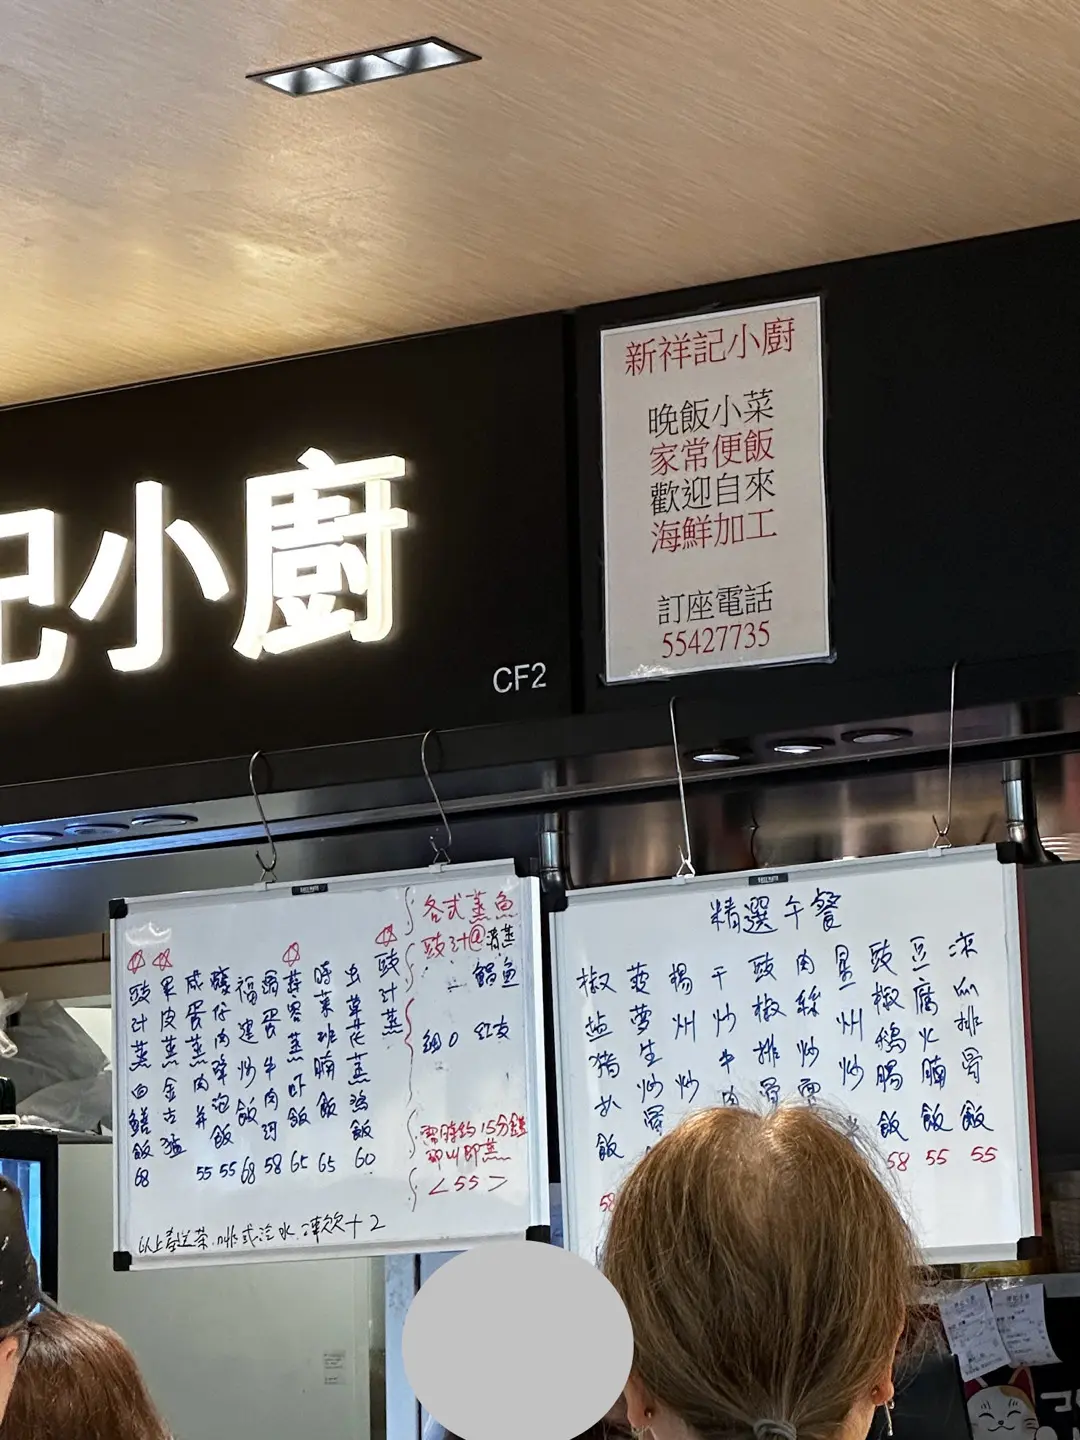 記小廚
CF2
新祥記小廚
晚飯小菜
家常便飯
歡迎自來
海鮮加工
訂座電話
55427735
各式蒸魚
豉汁@清蒸
鯧魚
紅友
需時約15分鐘
即叫即蒸
<55>
豉汁蒸
虫草花蒸鷄飯 60
時菜班腩飯 65
蒜蓉蒸虾飯 65
滑蛋牛肉河 58
福建炒飯 68
咸蛋蒸肉并 55
果皮蒸金古
豉汁蒸白鱔飯 68
以上奉送茶.啡或汽水.凍飲+2
精選午餐
涼瓜排骨飯 55
豆腐火腩飯 55
豉椒鵝腸飯 58
星州炒
肉絲炒
豉椒排骨
干炒牛肉
楊州炒
菠蘿生炒骨
椒盐豬扒飯